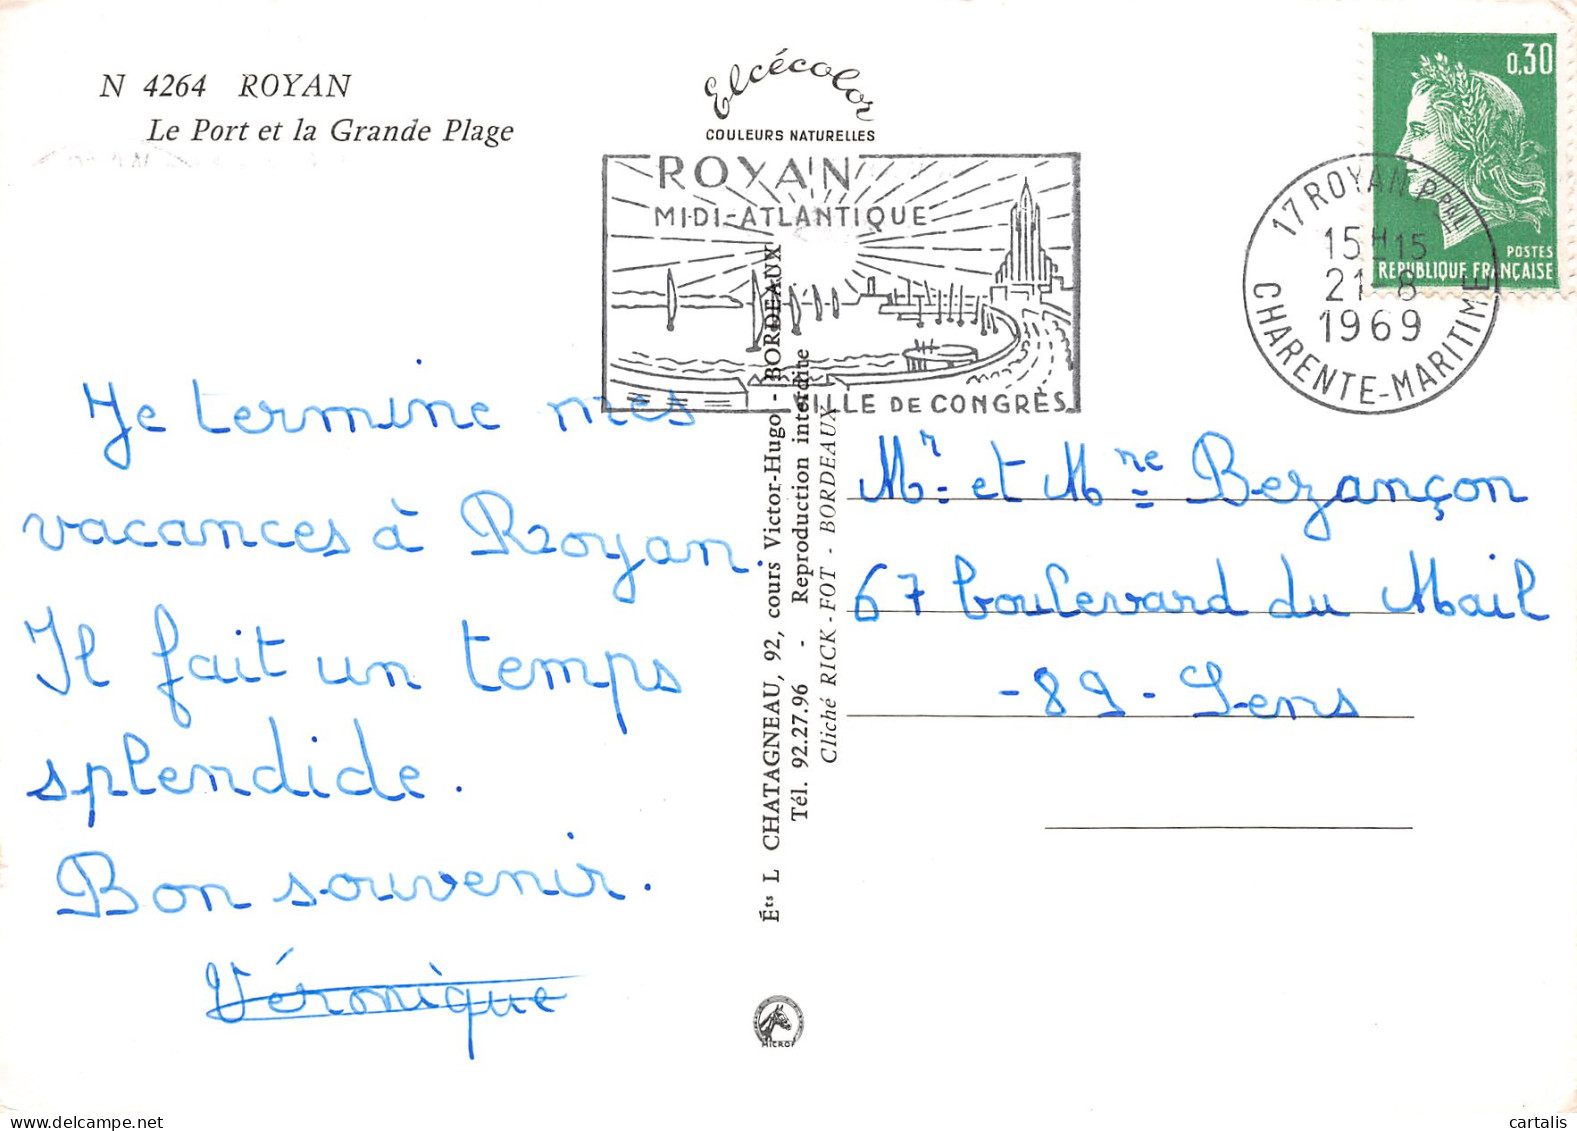 N 4264 ROYAN
Le Port et la Grande Plage
Elcécolor
COULEURS NATURELLES
ROYAN
MIDI-ATLANTIQUE
VILLE DE CONGRÈS
0,30
POSTES
REPUBLIQUE FRANÇAISE
17 ROYAN PPAL
15H15
21-8
1969
CHARENTE-MARITIME
Je termine mes
vacances à Royan.
Il fait un temps
splendide.
Bon souvenir.
Véronique
Éts L CHATAGNEAU, 92, cours Victor-Hugo - BORDEAUX
Tél. 92.27.96 - Reproduction interdite
Cliché RICK-FOT - BORDEAUX
Mr. et Mme Bezançon
67 boulevard du Mail
-89- Sens
MICROF
cartalis